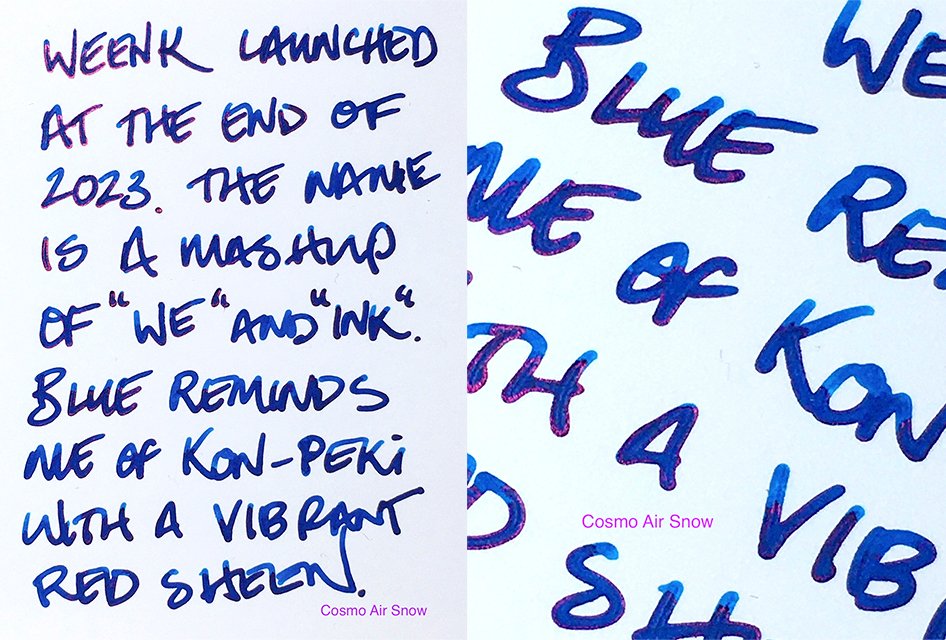 WEENK LAUNCHED
AT THE END OF
2023. THE NAME
IS A MASHUP
OF "WE" AND "INK".
BLUE REMINDS
ME OF KON-PEKI
WITH A VIBRANT
RED SHEEN.
Cosmo Air Snow
WE
BLUE
RE
ME OF
KON
TH A
VIB
D
SH
Cosmo Air Snow